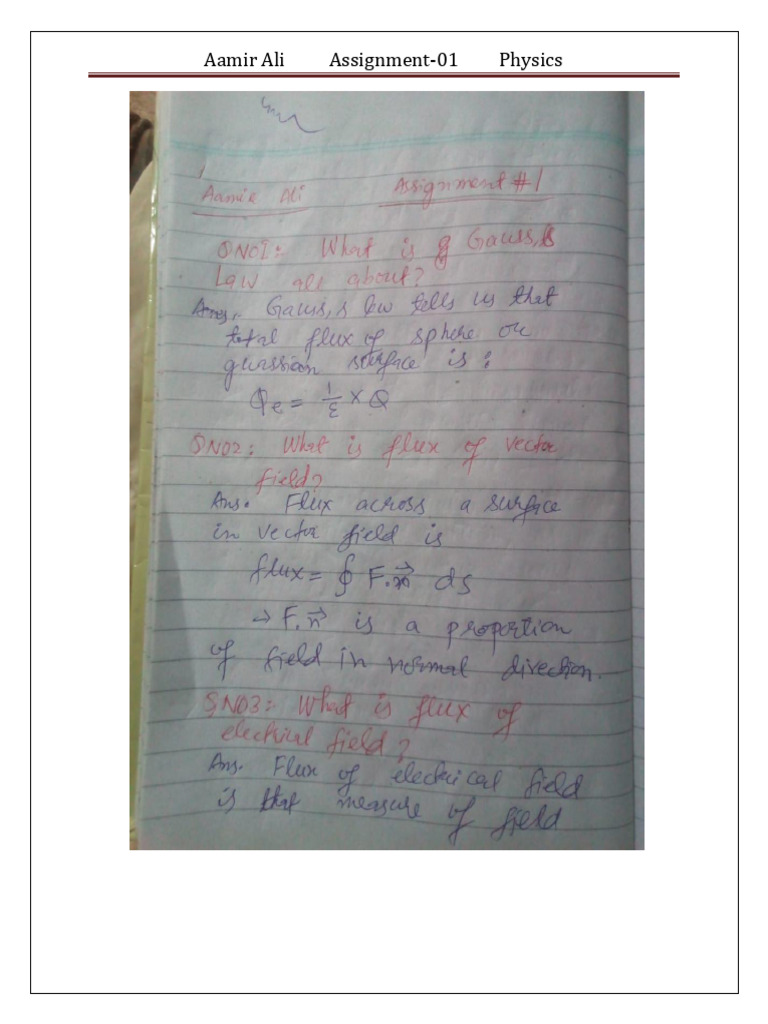 Aamir Ali Assignment-01 Physics
Aamir Ali Assignment #1
QNO1: What is Gauss,s
Law all about?
Ans. Gauss,s law tells us that
total flux of sphere or
guassian surface is:
Φe = 1/ε × Q
QNO2: What is flux of vector
field?
Ans. Flux across a surface
in vector field is
flux = ∮ F.n⃗ ds
→ F.n⃗ is a proportion
of field in normal direction.
QNO3: What is flux of
electrical field?
Ans. Flux of electrical field
is that measure of field